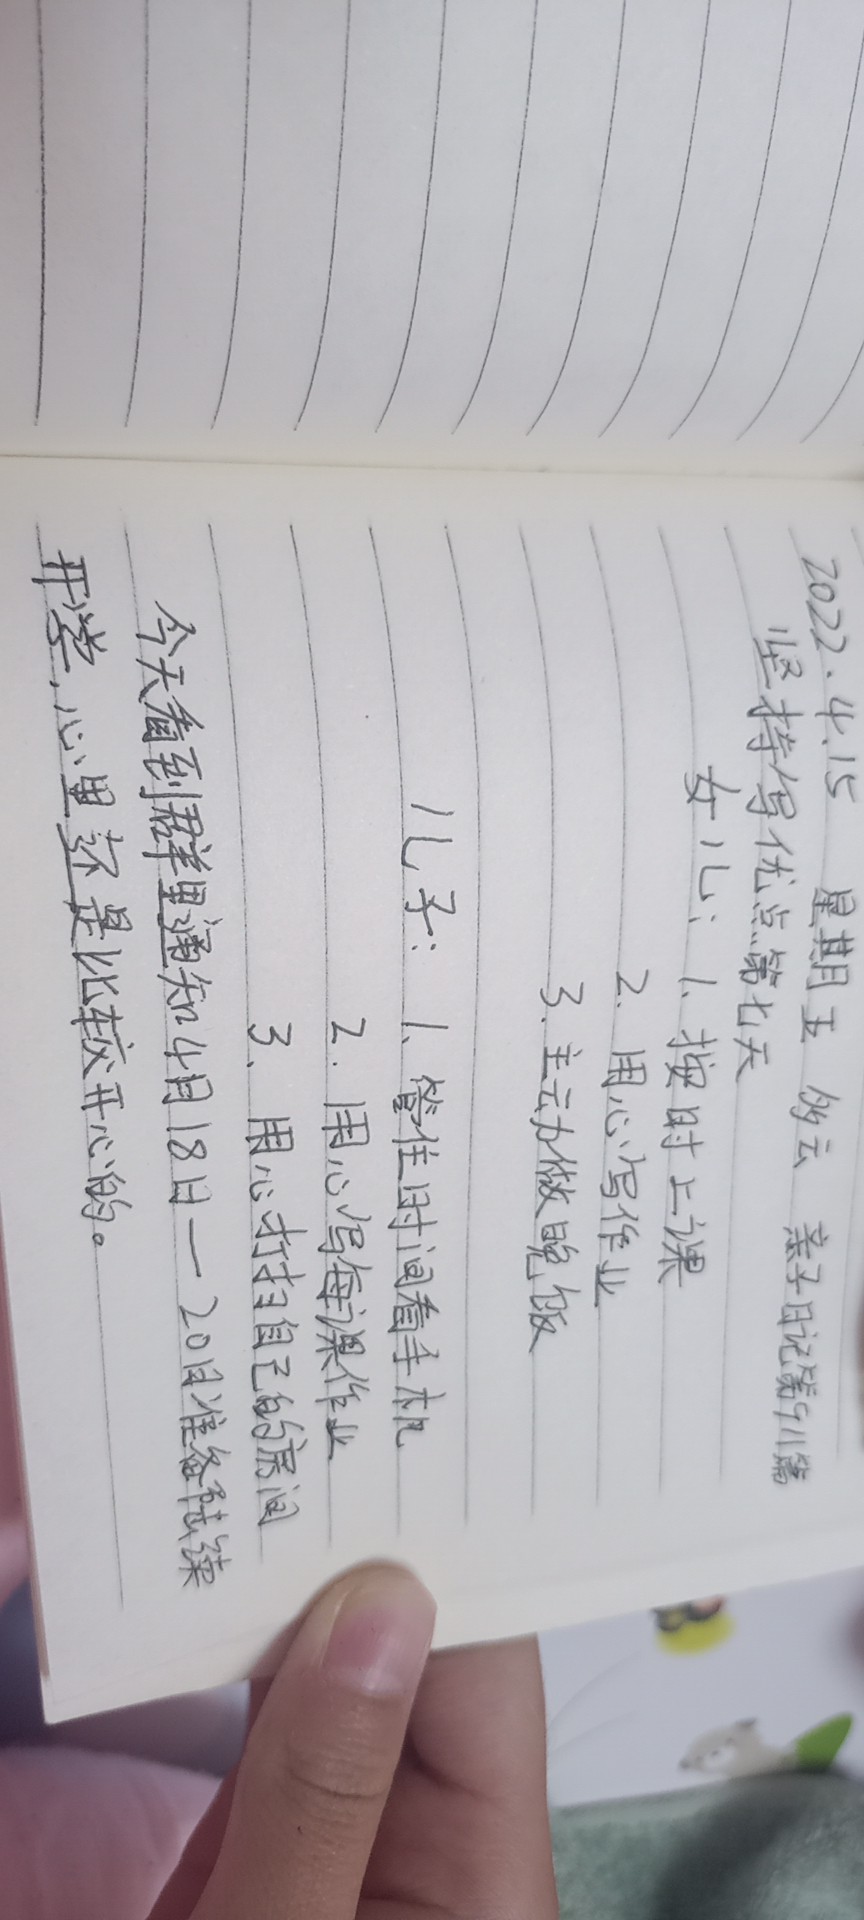 2022.4.15 星期五 多云 亲子日记第91篇
坚持写优点第七天
女儿：1、按时上课
2. 用心写作业
3.主动做晚饭
儿子：1、管住时间看手机
2.用心写每课作业
3、用心打扫自己的房间
今天看到群里通知4月18日一20日准备陆续
开学，心里还是比较开心的。